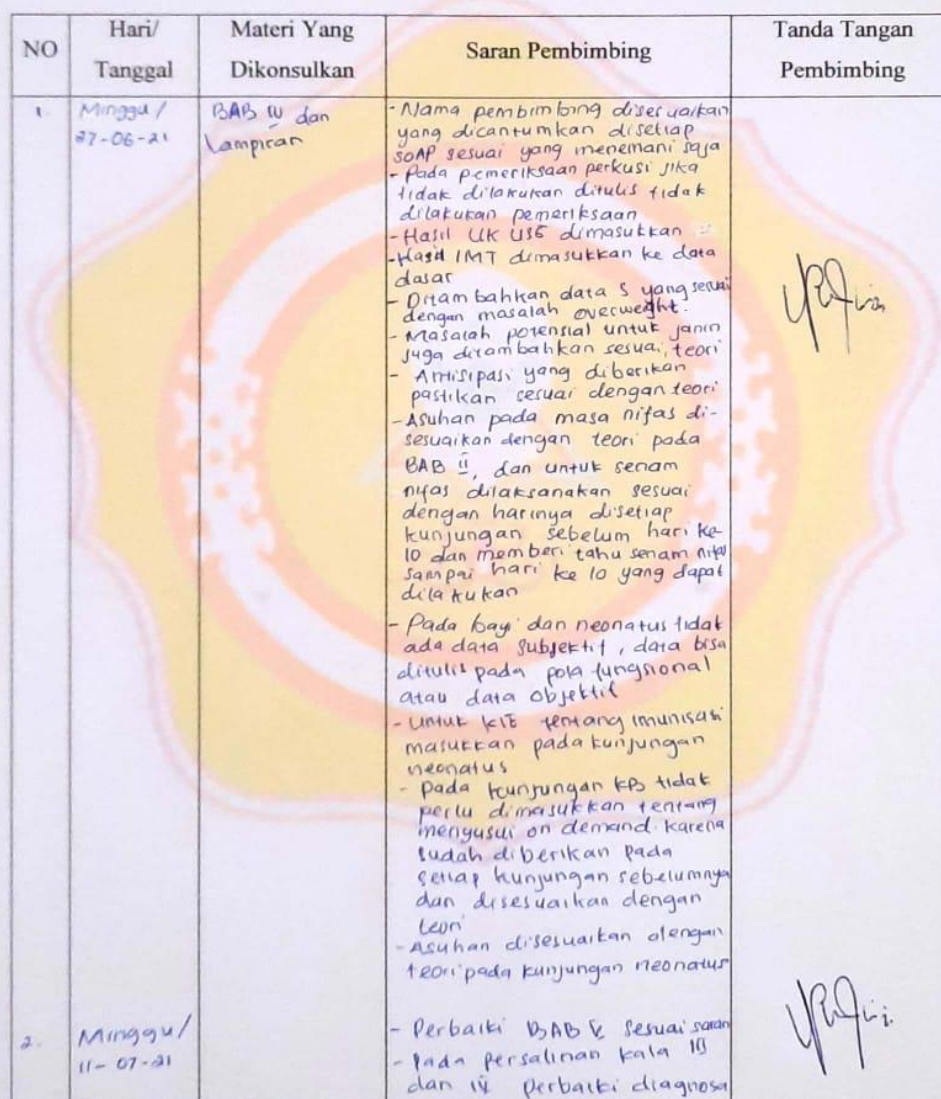 NO
Hari/
Tanggal
Materi Yang
Dikonsulkan
Saran Pembimbing
Tanda Tangan
Pembimbing
1.
Minggu /
27-06-21
BAB IV dan
Lampiran
- Nama pembimbing disesuaikan
yang dicantumkan disetiap
SOAP sesuai yang menemani saja
- Pada pemeriksaan perkusi jika
tidak dilakukan ditulis tidak
dilakukan pemeriksaan
- Hasil UK USG dimasukkan
- Hasil IMT dimasukkan ke data
dasar
- Ditambahkan data S yang sesuai
dengan masalah overweight.
- Masalah potensial untuk janin
juga ditambahkan sesuai teori
- Antisipasi yang diberikan
pastikan sesuai dengan teori
- Asuhan pada masa nifas di-
sesuaikan dengan teori pada
BAB II, dan untuk senam
nifas dilaksanakan sesuai
dengan harinya disetiap
kunjungan sebelum hari ke
10 dan memberi tahu senam nifas
sampai hari ke 10 yang dapat
dilakukan
- Pada bayi dan neonatus tidak
ada data subjektif, data bisa
ditulis pada pola fungsional
atau data objektif
- Untuk KIE tentang imunisasi
masukkan pada kunjungan
neonatus
- pada kunjungan KB tidak
perlu dimasukkan tentang
menyusui on demand karena
sudah diberikan pada
setiap kunjungan sebelumnya
dan disesuaikan dengan
teori
- Asuhan disesuaikan dengan
teori pada kunjungan neonatus
2.
Minggu/
11-07-21
- Perbaiki BAB V sesuai saran
- Pada persalinan kala III
dan IV perbaiki diagnosa